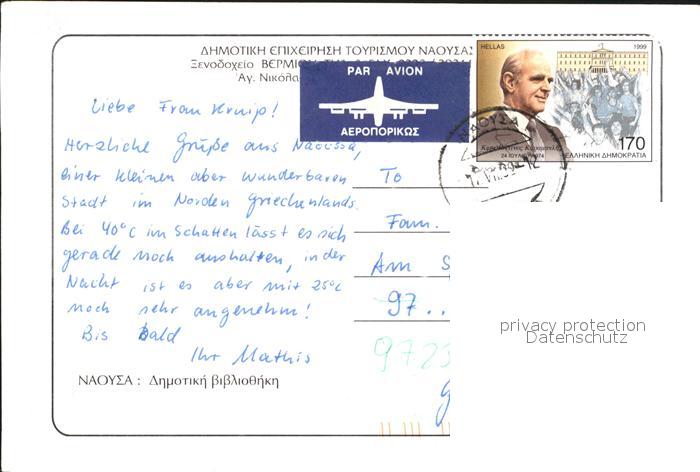 ΔΗΜΟΤΙΚΗ ΕΠΙΧΕΙΡΗΣΗ ΤΟΥΡΙΣΜΟΥ ΝΑΟΥΣΑΣ
Ξενοδοχείο ΒΕΡΜΙΟΝ
Αγ. Νικόλα
HELLAS 1999
170
24 ΙΟΥΛΙΟΥ 1974 ΕΛΛΗΝΙΚΗ ΔΗΜΟΚΡΑΤΙΑ
PAR AVION
ΑΕΡΟΠΟΡΙΚΩΣ
ΝΑΟΥΣΑ
Liebe Frau Knip!
Herzliche Grüße aus Naoussa,
einer kleinen aber wunderbaren
Stadt im Norden Griechenlands.
Bei 40°C im Schatten lässt es sich
gerade noch aushalten, in der
Nacht ist es aber mit 25°C
noch sehr angenehm!
Bis Bald
Ihr Mathis
To
Fam.
Am S
97..
9723
ΝΑΟΥΣΑ : Δημοτική βιβλιοθήκη
privacy protection
Datenschutz